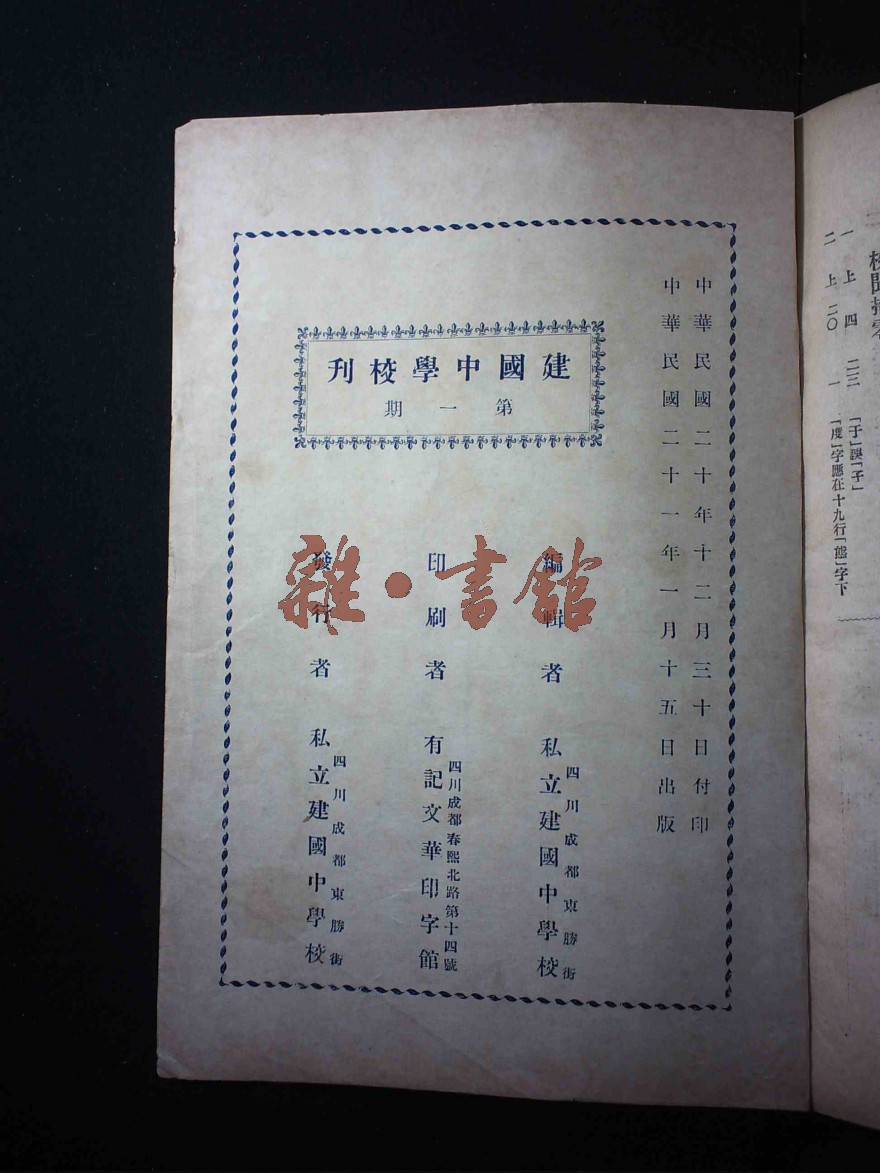 三
一 上 四 二三 「于」誤「子」
二 上 二〇 一 「度」字應在十九行「態」字下
中華民國二十年十二月三十日付印
中華民國二十一年一月十五日出版
建國中學校刊
第一期
編輯者 私立建國中學校
四川成都東勝街
印刷者 有記文華印字館
四川成都春熙北路第十四號
發行者 私立建國中學校
四川成都東勝街
雜·書館